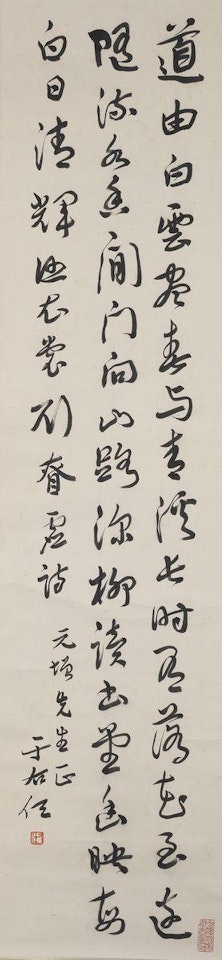 道由白雲盡春与青溪長時有落花至遠
隨流水香閒門向山路深柳讀書堂幽映每
白日清輝照衣裳 劉眘虛詩
元先生正
于右任